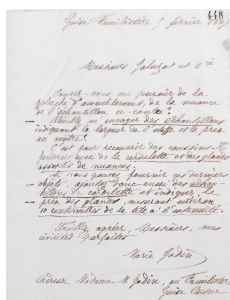 448
Guise Familistère 5 février 189
Messieurs Jaluzot et Cie
Pouvez-vous me fournir de la
peluche d'ameublement, de la nuance
de l'échantillon ci-contre?
Veuillez m'envoyer des échantillons
indiquant la largeur de l'étoffe et le prix
au mètre?
C'est pour recouvrir des coussins. Il
faudrait avec de la cordelette et des glands
assortis de nuances.
Si vous pouvez fournir ces derniers
objets, ajoutez donc aussi des échan-
tillons de cordelette et indiquez le
prix des glands, mesurant environ
10 centimètres de la tête à l'extrémité.
Veuillez agréer, Messieurs, mes
civilités parfaites
Marie Godin
Adresse Madame M. Godin, au Familistère
Guise Aisne